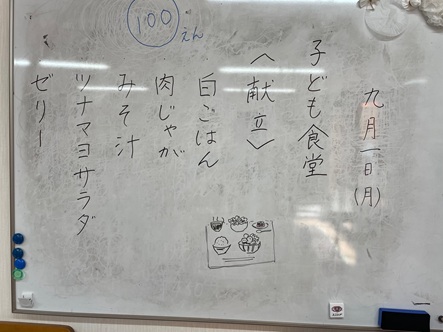 九月一日(月)
子ども食堂
〈献立〉
白ごはん
肉じゃが
みそ汁
ツナマヨサラダ
ゼリー
100
えん